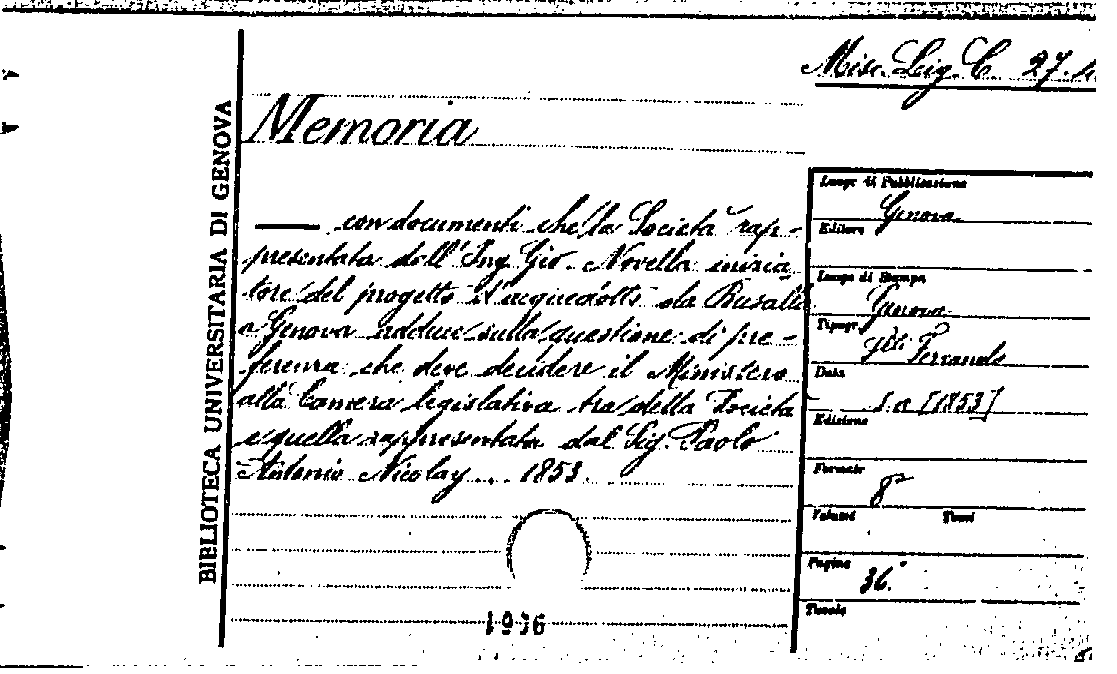 Misc. Lig. C. 27.
Memoria
—— con documenti che la Società rap-
presentata dall'Ing. Gio. Novella inizia
tore del progetto d'acquedotto da Busalla
a Genova adduce sulla questione di pre-
ferenza che deve decidere il Ministero
alla Camera legislativa tra della Società
e quella rappresentata dal Sig. Paolo
Antonio Nicolay... 1853.
1916
BIBLIOTECA UNIVERSITARIA DI GENOVA
Luogo di Pubblicazione
Genova
Editore
Luogo di Stampa
Genova
Tipogr.
Flli Ferrando
Data
s. a [1853]
Edizione
Formato
8°
Volumi Tomi
Pagine
36.
Tavole